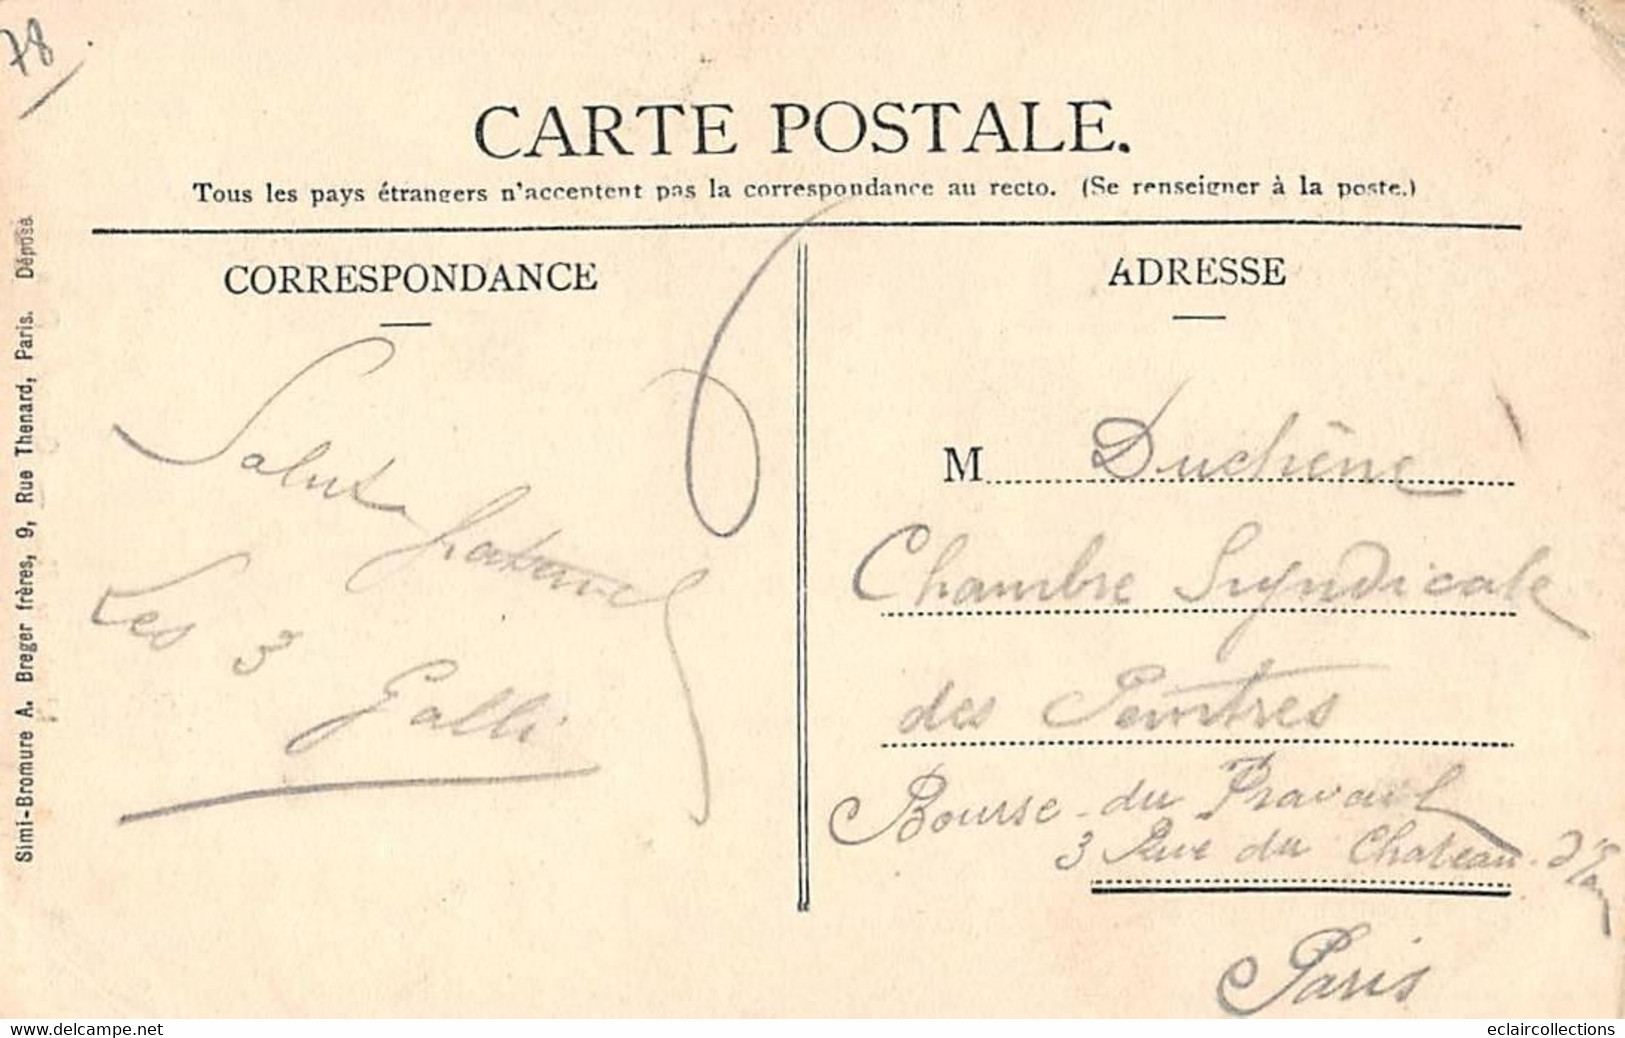 78
CARTE POSTALE.
Tous les pays étrangers n'acceptent pas la correspondance au recto. (Se renseigner à la poste.)
CORRESPONDANCE
Salut fraternel
Les 3
Galli
ADRESSE
M Duchêne
Chambre Syndicale
des Peintres
Bourse du Travail
3 Rue du Chateau d'Eau
Paris
Simi-Bromure A. Breger frères, 9, Rue Thenard, Paris. Déposé
www.delcampe.net
eclaircollections